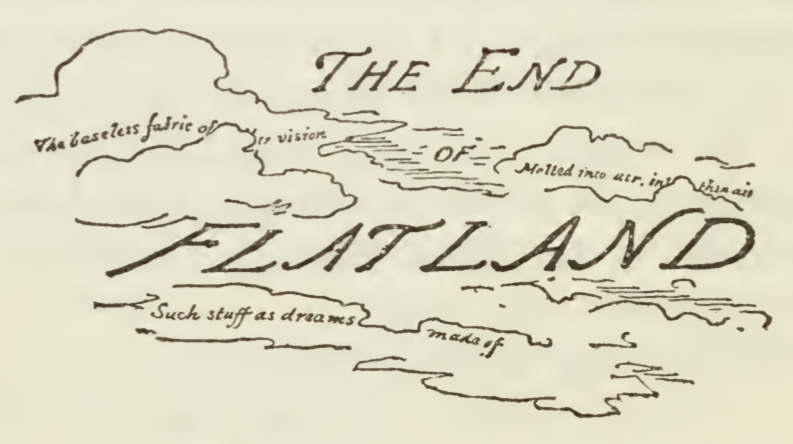 THE END
The baseless fabric of
vision
OF
Melted into air, int
thin air
FLATLAND
Such stuff as dreams
made of